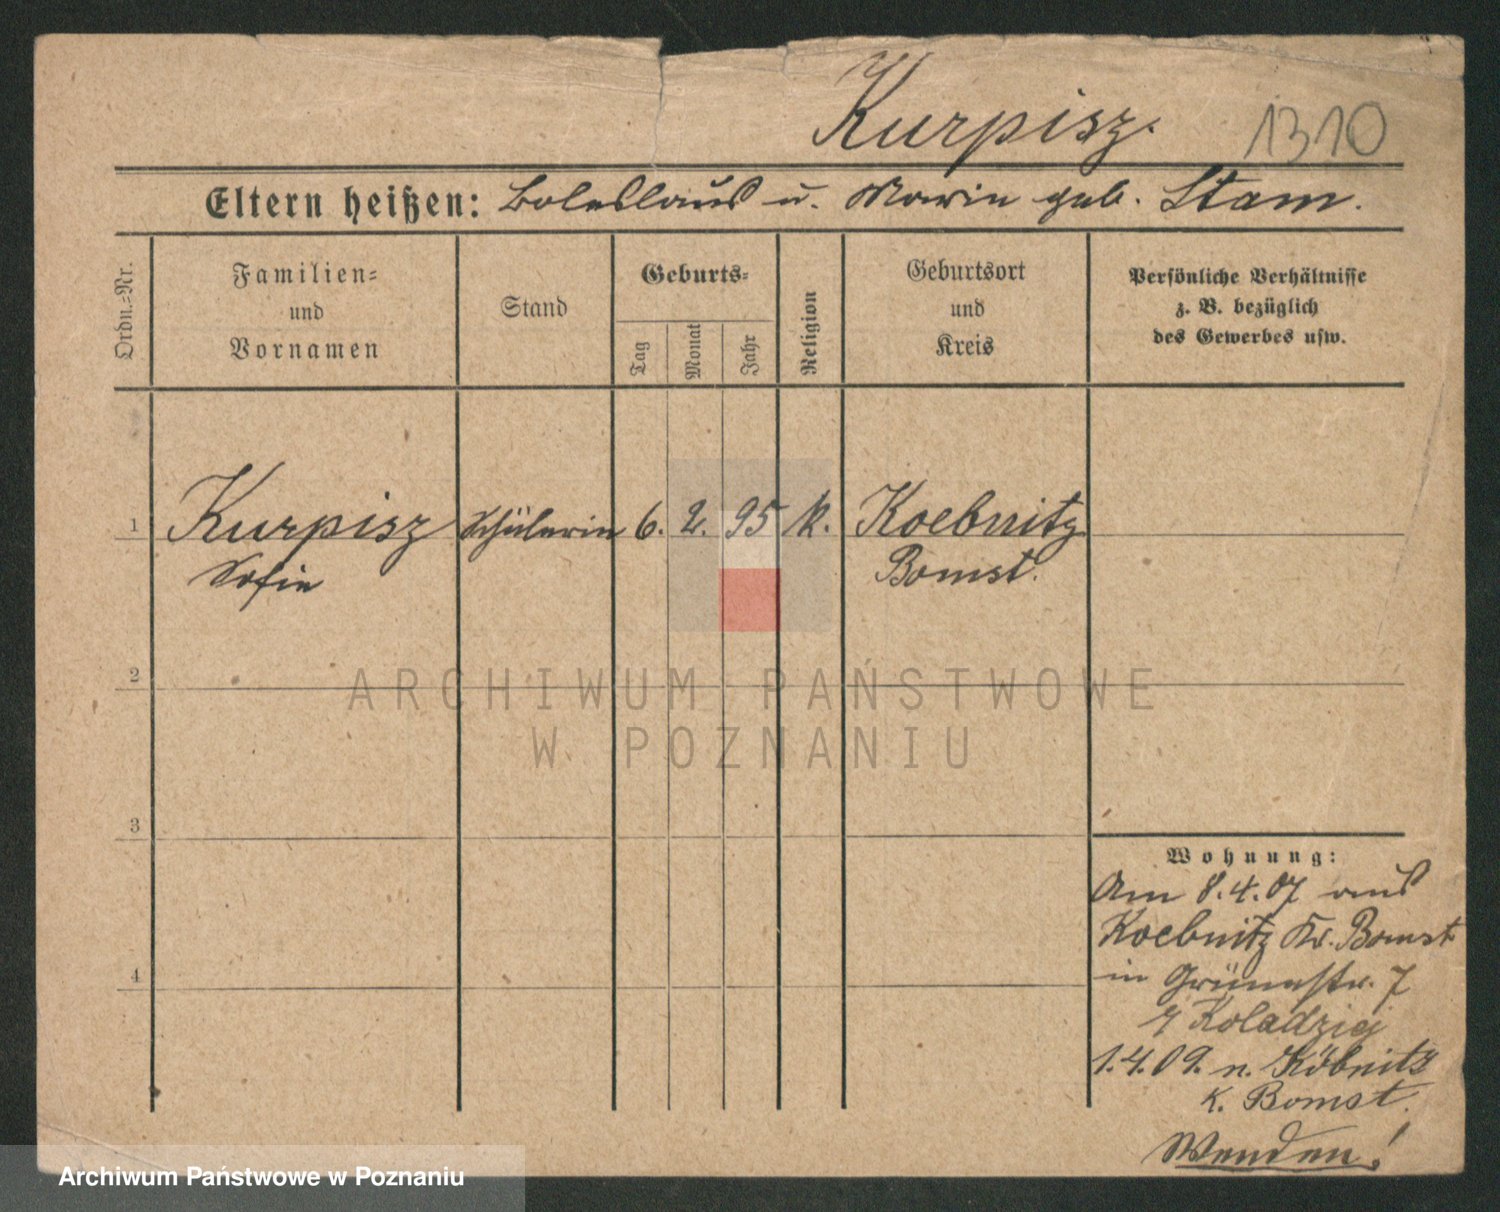 Kurpisz. 1310
Eltern heißen: Boleslaus u. Marie geb. Stam.
Ordn.-Nr.
Familien-
und
Vornamen
Stand
Geburts-
Tag
Monat
Jahr
Religion
Geburtsort
und
Kreis
Persönliche Verhältnisse
z. B. bezüglich
des Gewerbes usw.
1 Kurpisz Schülerin 6. 2. 95 k. Koebnitz
Sofie Bomst.
2
ARCHIWUM PAŃSTWOWE
W POZNANIU
3
Wohnung:
Am 8.4.07 aus
Koebnitz Kr. Bomst
4
in Grünestr. 7
Koladziej
1.4.09. n. Köbnitz
K. Bomst.
Wenden!
Archiwum Państwowe w Poznaniu